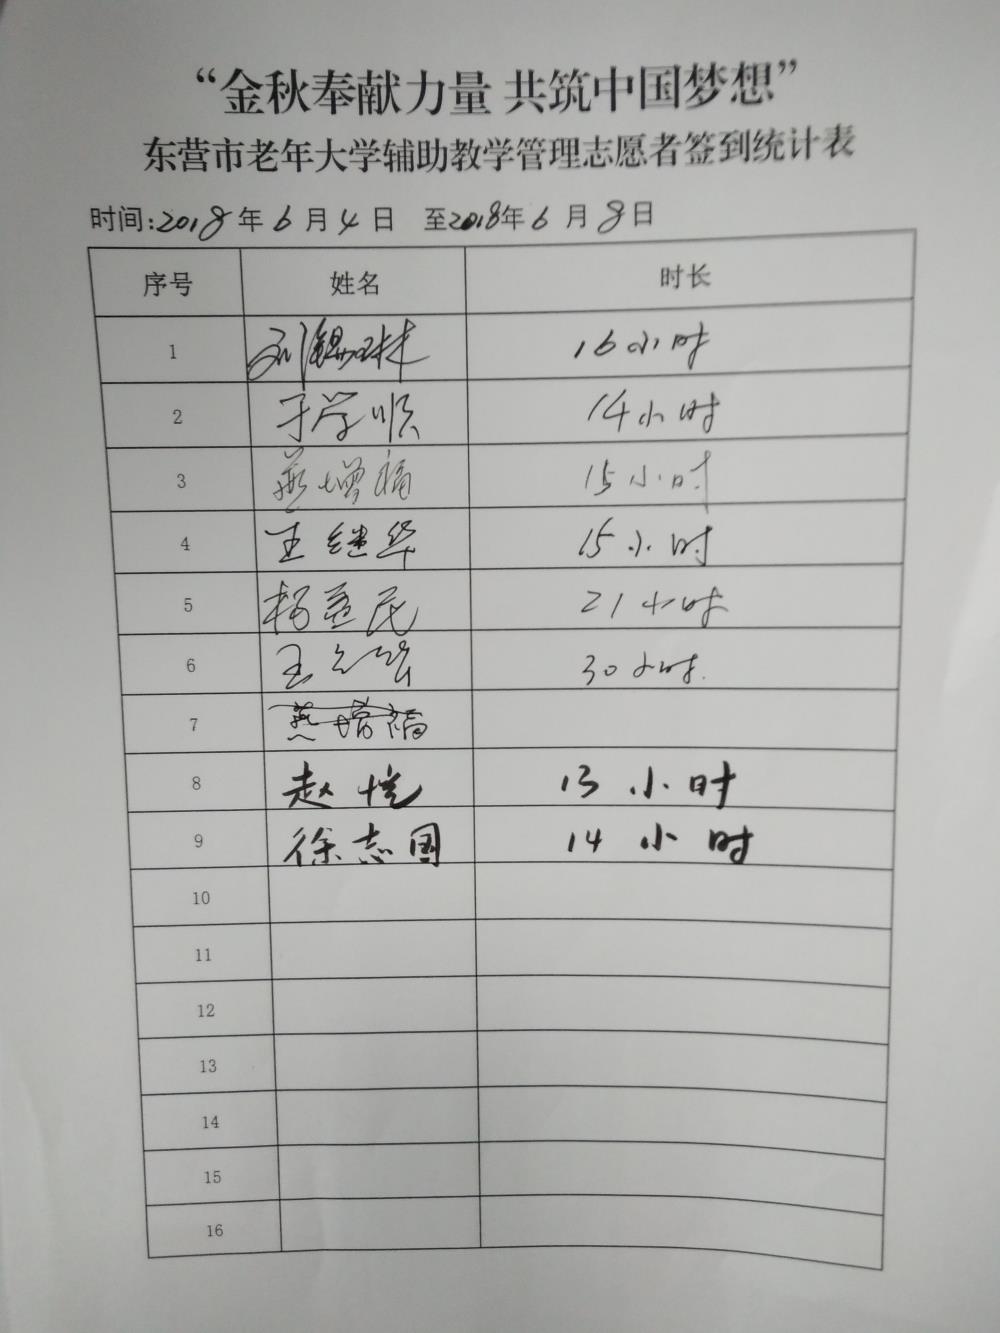 “金秋奉献力量 共筑中国梦想”
东营市老年大学辅助教学管理志愿者签到统计表
时间:2018年6月4日 至2018年6月8日
序号 姓名 时长
1 刘锡林 16小时
2 于学顺 14小时
3 燕增福 15小时
4 王继华 15小时
5 杨益民 21小时
6 王 30小时.
7 燕增福
8 赵恺 13小时
9 徐志国 14小时
10
11
12
13
14
15
16